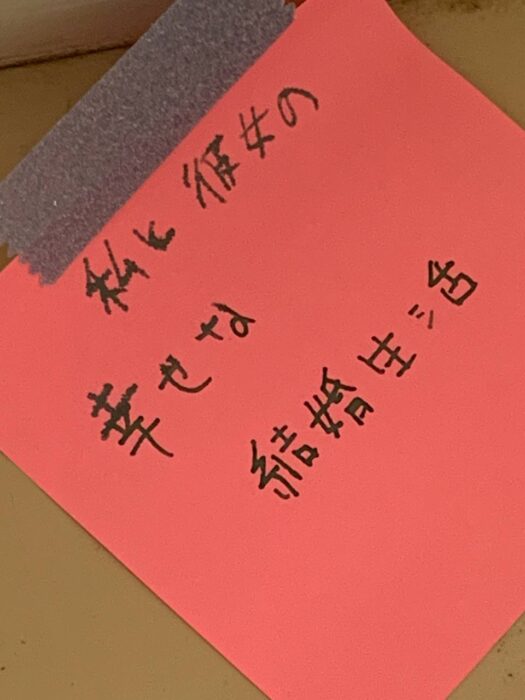 私と彼女の
幸せな
結婚生活